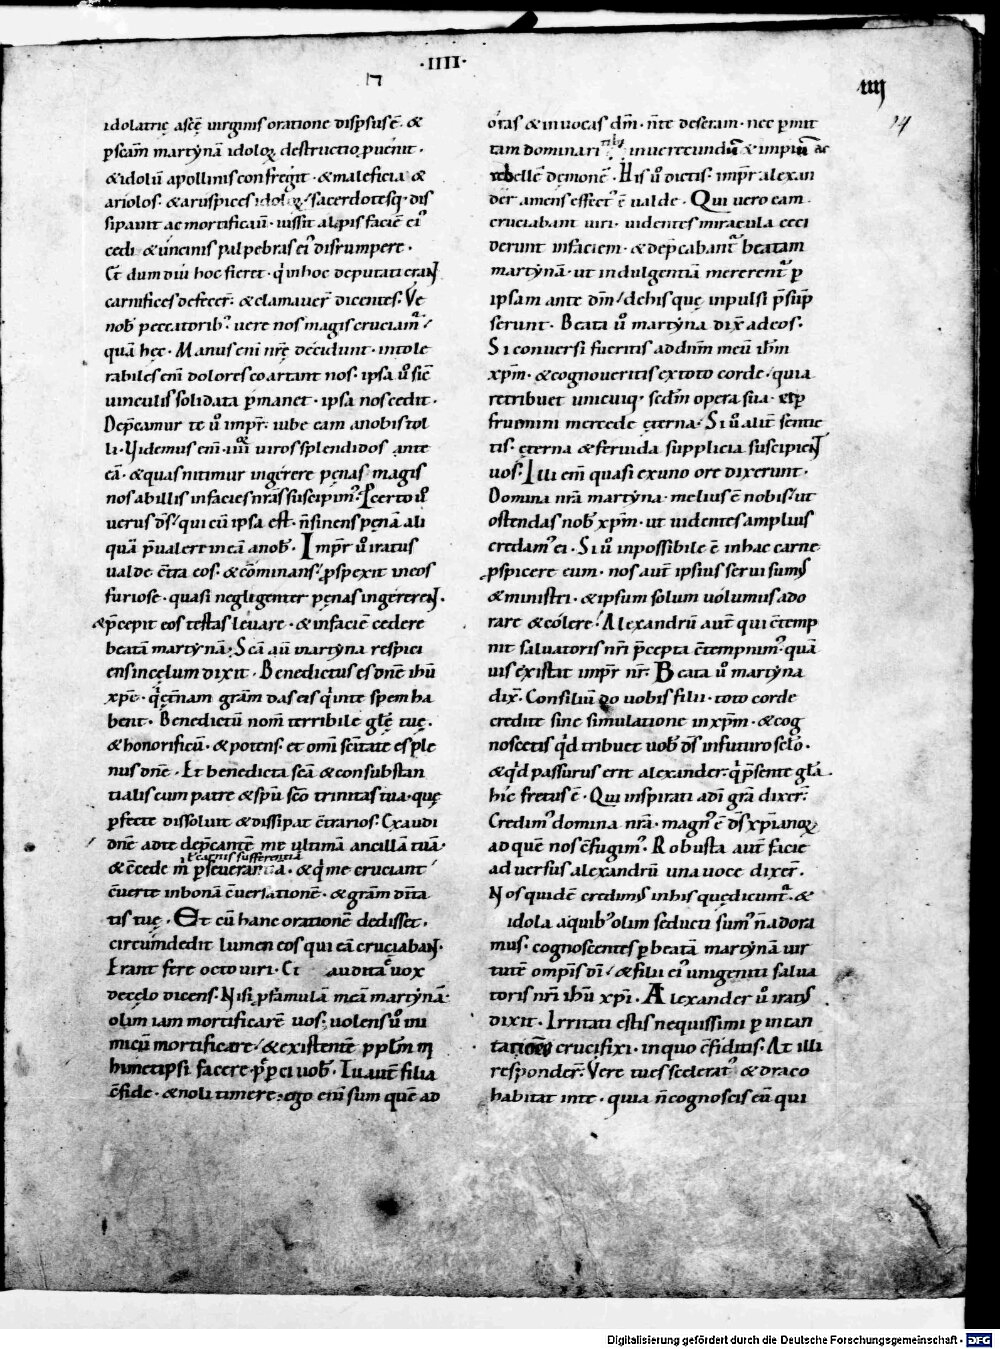 ·IIII·
IIII
14
idolatrię ascę̄ uirginis oratione disp̄sus ē· &
p̄ seam̄ martynā idoloꝝ destructio puenit·
& idolū apollinis confregit· & maleficia &
ariolos· & aruspices idoloꝝ / sacerdotesq; dis
sipauit ac mortificauit· iussit alapis faciē ei'
cedi & uncinis palpebras ei' disrumpere·
Cū dum diu hoc fieret· qui in hoc deputati eraN
carnifices defecer̄· & clamauer̄ dicentes· Ve
nob̄ peccatorib'· uere nos magis cruciam̄
quā hęc· Manus enī nr̄ę decidunt· intole
rabiles enī dolores coartant nos· ipsa ū sic̄
uinculis solidata p̄manet· ipsa nos cedit·
Dep̄camur te ū imp̄r· iube eam a nobis tol
li· Videmus enī· IIIIor uiros splendidos ante
eā· & quas nitimur ingerere pęnas· magis
nos ab illis in facies nr̄as suscipim'· P certo ū
uerus dſ / qui cū ipsa est· n̄ sinens pęnā ali
quā p̄ualere in eā a nob̄· Imp̄r ū iratus
ualde c̄tra eos· & cōminans / p̄spexit in eos
furiose· quasi negligenter pęnas ingerereN·
& p̄cepit eos testas leuare· & in faciē cedere
beatā martynā· Scā aū martyna respici
ens in cęlum dixit· Benedictus es dn̄e ihū
xp̄e· qui etn̄am grām das eis qui in te spem ha
bent· Benedictū nom̄ terribile glę̄ tuę·
& honorificū· & potens· et omī sc̄itate es ple
nus dn̄e· Et benedicta scā & consubstan
tialis cum patre & sp̄u sc̄o trinitas tua· quę
p̄fecte dissoluit & dissipat c̄trarios· Exaudi
dn̄e ad te dep̄cantē me ultimā ancillā tuā·
et carnis sufferentiā
& c̄cede m̄ p̄seuerantiā· & qui me cruciant
c̄uerte in bonā c̄uersationē· & grām dn̄ta
tis tuę· Et cū hanc orationē dedisset·
circumdedit lumen eos qui eā cruciabaN·
Erant fere octo uiri· Et audita ē uox
de cęlo dicens· Nisi p̄ famulā meā martynā·
olim iam mortificarē uos· uolens ū ini
micū mortificare / & existentē p̄
himet ipsi facere p̄p̄ci uob̄· Tu aut̄ filia
c̄fide· & noli timere· ego enī sum quē ad
oras & inuocas dn̄m· n̄ te deseram· nec p̄mit
tam dominari tibi inuerecundū & impiū ac
rebellē dęmonē· His ū dictis· imp̄r alexan
der amens effect' ē ualde· Qui uero eam
cruciabant uiri· uidentes miracula ceci
derunt in faciem· & dep̄cabant' beatam
martynā· ut indulgentiā mererent' p̄
ipsam ante dm̄ / de his quę inpulsi p̄sūp
serunt· Beata ū martyna dix̄ ad eos·
Si conuersi fueritis ad dn̄m meū ihm̄
xp̄m· & cognoueritis ex toto corde / quia
retribuet unicuiq; sed̄m opera sua· et p̄
fruimini mercede ęterna· Si ū alit̄ sentie
tis· ęterna & feruida supplicia suscipieN
uos· Illi em̄ quasi ex uno ore dixerunt·
Domina nr̄a martyna· melius ē nobis / ut
ostendas nob̄ xp̄m· ut uidentes amplius
credam' ei· Si ū inpossibile ē in hac carne
p̄spicere eum· nos aut̄ ipsius serui sum'
& ministri· & ipsum solum uolumus ado
rare & colere / Alexandrū aut̄ qui c̄temp
nit saluatoris nr̄i p̄cepta c̄tempnim'· quā
uis existat imp̄r nr̄· Beata ū martyna
dix̄· Consiliū do uobis filii· toto corde
credite sine simulatione in xp̄m· & cog
noscetis qd̄ tribuet uob̄ dſ in futuro sc̄lo·
& qd̄ passurus erit alexander· qui p̄sente gl̄a·
hic fretus ē· Qui inspirati a di grā dixer̄·
Credim' domina nr̄a· magn' ē dſ xp̄ianoꝝ
ad quē nos c̄fugim'· Robusta aut̄ facie
aduersus alexandrū una uoce dixer̄·
Nos quidē credim' in his quę dicunt'· &
idola a quib' olim seducti sum' n̄ adora
mus· cognoscentes p̄ beatā martynā uir
tutē omp̄is di· & filii ei' unigeniti salua
toris nr̄i ihū xp̄i· Alexander ū irat'
dixit· Irritati estis nequissimi p̄ incan
tationes crucifixi· in quo c̄fiditis· At illi
responder̄· Vere tu es scelerat' & draco
habitat in te· quia n̄ cognoscis eū qui
Digitalisierung gefördert durch die Deutsche Forschungsgemeinschaft - DFG